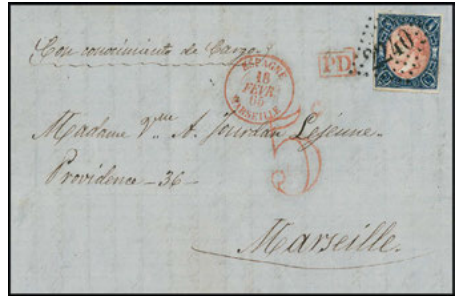 Con conocimiento de Cargo.
ESPAGNE
18
FEVR
65
MARSEILLE
PD
2240
5
Madame Vve A. Jourdan Lejeune.
Providence - 36 -
Marseille.